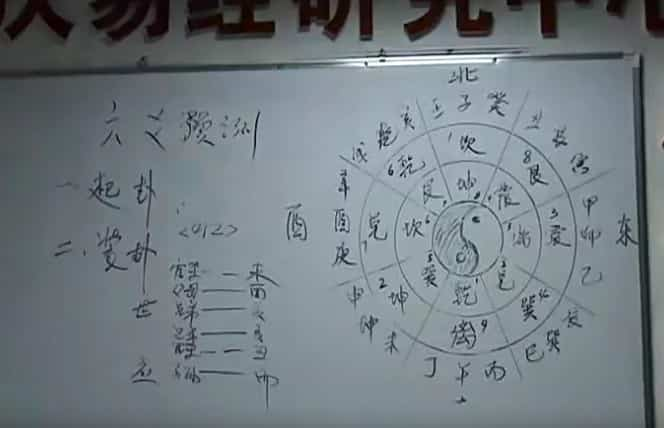 易经研究中心
六爻预测
一 起卦
二、装卦
<012>
未
父母 酉
世 兄弟
丑
应 卯
北
壬 子 癸
丑 艮 寅
甲 卯 乙
东
辰 巽 巳
丙 午 丁
未 坤 申
庚 酉 辛
西
戌 乾 亥
1 坎
8 艮
3 震
4 巽
9 离
2 坤
7 兑
6 乾
坤
震
离
兑
乾
巽
坎
艮